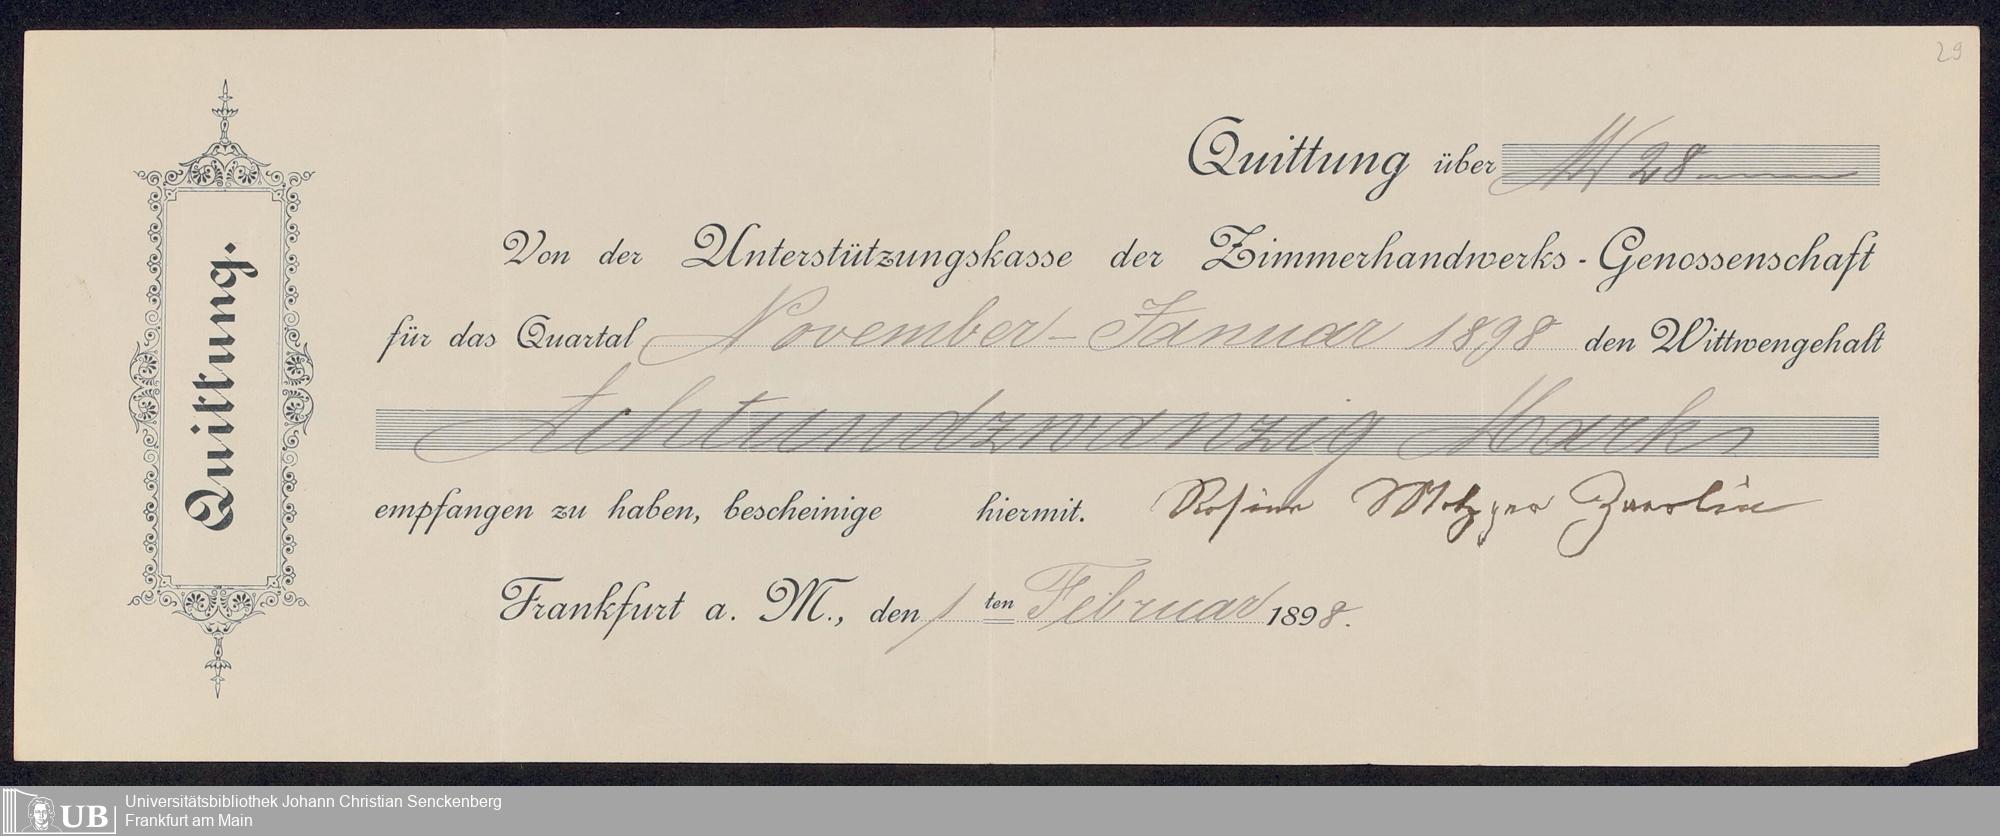 29
Quittung.
Quittung über M 28
Von der Unterstützungskasse der Zimmerhandwerks-Genossenschaft
für das Quartal November – Januar 1898 den Wittwengehalt
Achtundzwanzig Mark
empfangen zu haben, bescheinige hiermit. Rosine Metzger
Frankfurt a. M., den 1ten Februar 1898.
UB Universitätsbibliothek Johann Christian Senckenberg
Frankfurt am Main